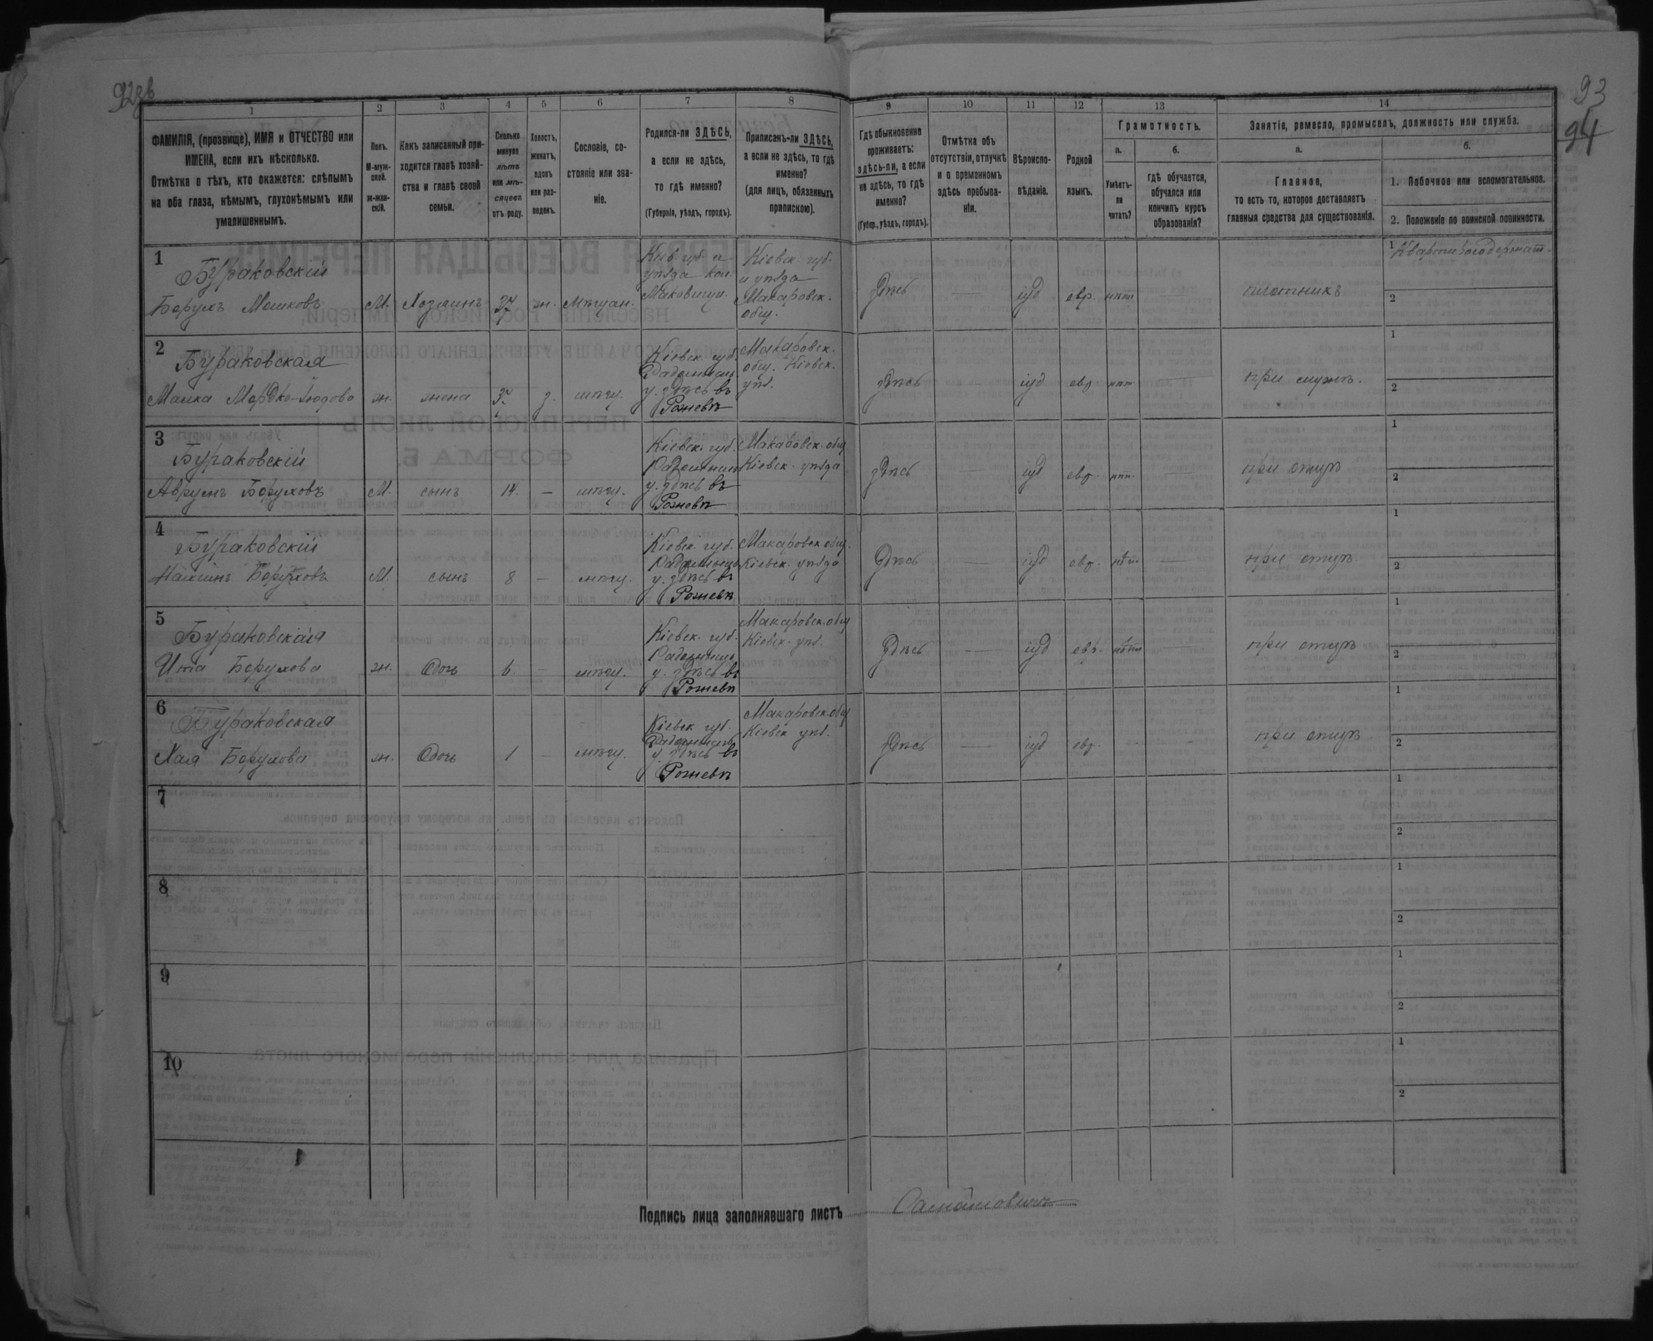 92об
93
94
1
2
3
4
5
6
7
8
9
10
11
12
13
14
ФАМИЛІЯ, (прозвище), ИМЯ и ОТЧЕСТВО или
ИМЕНА, если ихъ нѣсколько.
Отмѣтка о тѣхъ, кто окажется: слѣпымъ
на оба глаза, нѣмымъ, глухонѣмымъ или
умалишеннымъ.
Полъ.
М-муж-
ской.
ж-жен-
скій.
Какъ записанный при-
ходится главѣ хозяй-
ства и главѣ своей
семьи.
Сколько
минуло
лѣтъ
или мѣ-
сяцевъ
отъ роду.
Холостъ,
женатъ,
вдовъ
или раз-
веденъ.
Сословіе, со-
стояніе или зва-
ніе.
Родился-ли ЗДѢСЬ,
а если не здѣсь,
то гдѣ именно?
(Губернія, уѣздъ, городъ).
Приписанъ-ли ЗДѢСЬ,
а если не здѣсь, то гдѣ
именно?
(для лицъ, обязанныхъ
припискою).
Гдѣ обыкновенно
проживаетъ:
здѣсь-ли, а если
не здѣсь, то гдѣ
именно?
(Губер., уѣздъ, городъ).
Отмѣтка объ
отсутствіи, отлучкѣ
и о временномъ
здѣсь пребыва-
ніи.
Вѣроиспо-
вѣданіе.
Родной
языкъ.
Грамотность.
а.
Умѣетъ-
ли
читать?
б.
гдѣ обучается,
обучался или
кончилъ курсъ
образованія?
Занятіе, ремесло, промыселъ, должность или служба.
а.
Главное,
то есть то, которое доставляетъ
главныя средства для существованія.
б.
1. Побочное или вспомогательное.
2. Положеніе по воинской повинности.
1
Бураковскій
Борухъ Мошковъ
М.
Хозяинъ
37
ж.
мѣщан.
Кіев губ. и
уѣзда
Кіевск. губ.
и уѣзда
Макаровск.
общ.
здѣсь
іуд
евр.
нѣт
плотникъ
1
2
2
Бураковская
Малка
ж.
жена
з.
мѣщ.
Кіевск. губ.
Радомысл.
у. здѣсь въ
Рожевѣ
Макаровск.
общ. Кіевск.
уѣз.
здѣсь
іуд
евр.
нѣт
при мужѣ.
1
2
3
Бураковскій
Аврумъ Боруховъ
М.
сынъ
14.
мѣщ.
Кіевск. губ.
Радомысл
у. здѣсь въ
Рожевѣ
Макаровск. общ
Кіевск. уѣзда
здѣсь
іуд
евр.
нѣт
при отцѣ
1
2
4
Бураковскій
Боруховъ
М.
сынъ
8
мѣщ.
Кіевск. губ.
Радомысл
у. здѣсь въ
Рожевѣ
Макаровск. общ.
Кіевск. уѣзда
здѣсь
іуд
евр.
нѣт
при отцѣ
1
2
5
Бураковскія
Ита Борухова
ж.
дочь
6
мѣщ.
Кіевск. губ.
Радомысл.
у. здѣсь въ
Рожевѣ
Макаровск. общ
Кіевск. уѣз.
здѣсь
іуд
евр.
нѣт
при отцѣ
1
2
6
Бураковская
Хая Борухова
ж.
дочь
1
мѣщ.
Кіевск губ.
Радомысл
у. здѣсь въ
Рожевѣ
Макаровск. общ
Кіевск уѣз.
здѣсь
іуд
евр.
при отцѣ
1
2
7
1
2
8
1
2
9
1
2
10
1
2
Подпись лица заполнявшаго листъ